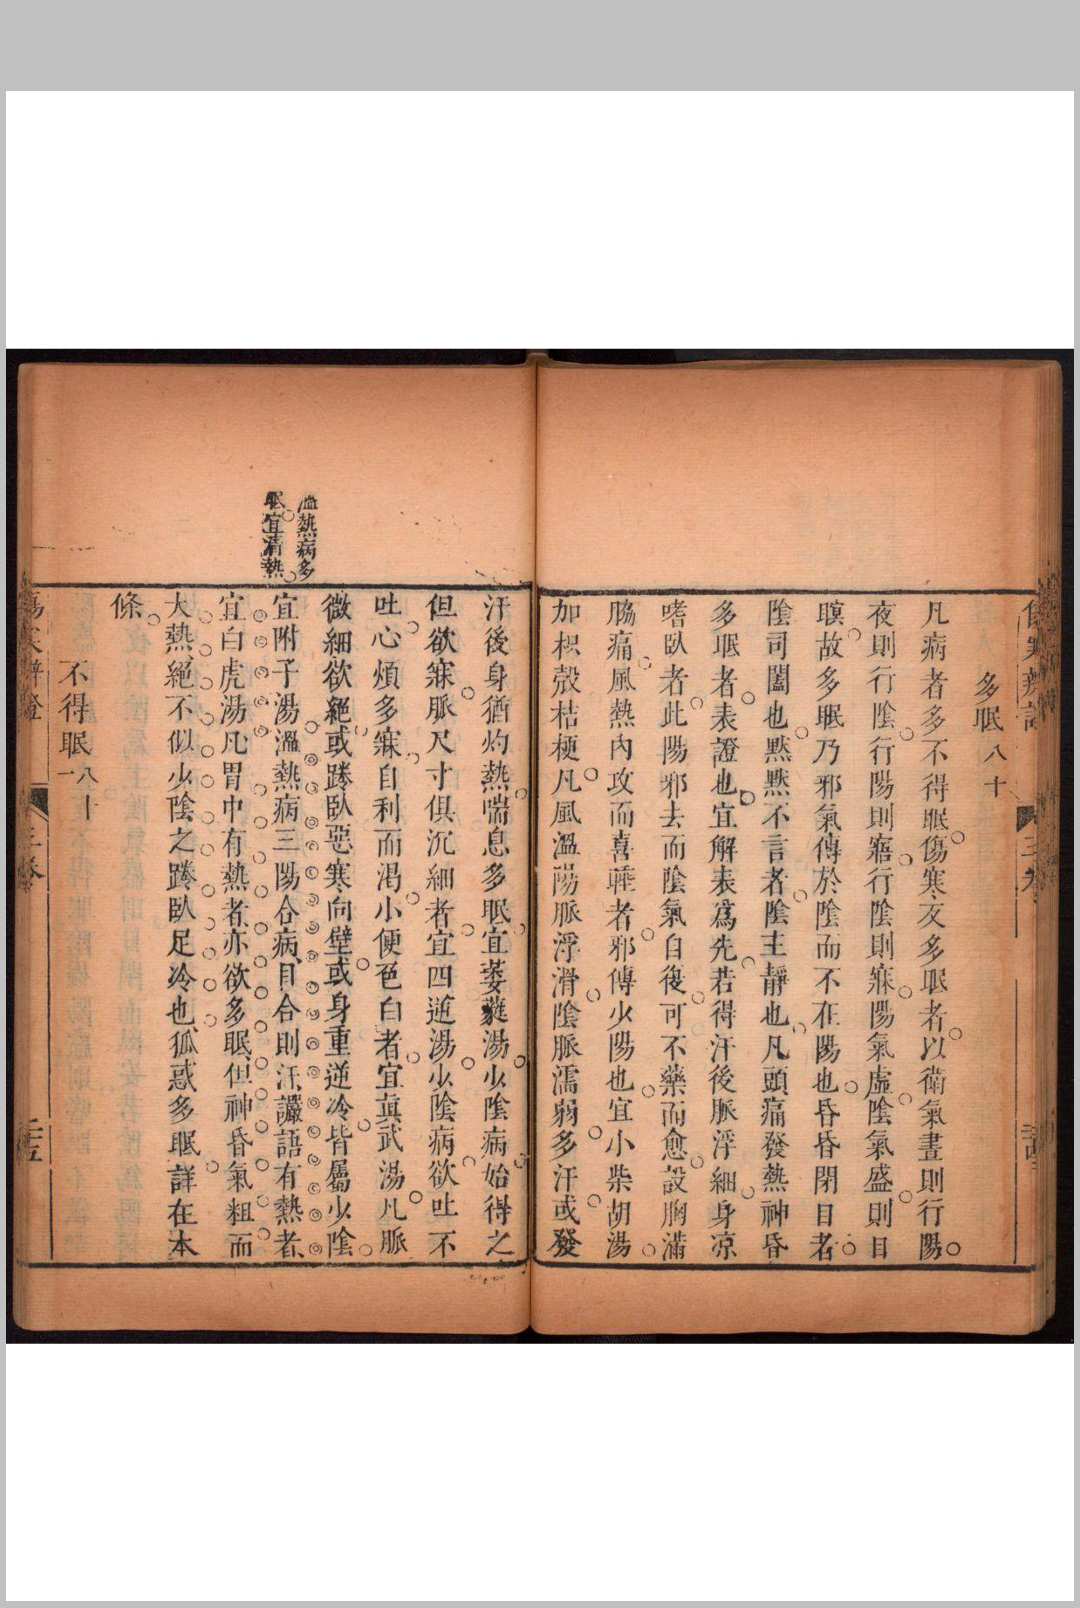 多眠八十
凡病者多不得眠傷寒反多眠者以衛氣晝則行陽
夜則行陰行陽則寤行陰則寐陽氣虛陰氣盛則目
瞑故多眠乃邪氣傳於陰而不在陽也昏昏閉目者
陰司闔也黙黙不言者陰主靜也凡頭痛發熱神昏
多眠者表證也宜解表爲先若得汗後脈浮細身凉
嗜臥者此陽邪去而陰氣自後可不藥而愈設胸滿
脇痛風熱內攻而喜睡者邪傳少陽也宜小柴胡湯
加枳殼桔梗凡風溫陽脈浮滑陰脈濡弱多汗或發
汗後身猶灼熱喘息多眠宜萎蕤湯少陰病始得之
但欲寐脈尺寸俱沉細者宜四逆湯少陰病欲吐不
吐心煩多寐自利而渴小便色白者宜眞武湯凡脈
微細欲絕或踡臥惡寒向壁或身重逆冷皆屬少陰
宜附子湯溫熱病三陽合病目合則汗讝語有熱者
宜白虎湯凡胃中有熱者亦欲多眠但神昏氣粗而
大熱絕不似少陰之踡臥足冷也狐惑多眠詳在本
條
不得眠八十一
溫熱病多
眠宜清熱
三卷
傷寒辨證
三卷